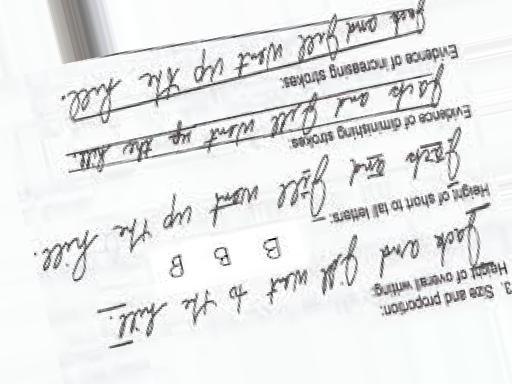 3. Size and proportion:
Height of overall writing:
Jack and Jill went to the hill.
B B B
Height of short to tall letters:
Jack and Jill went up the hill.
Evidence of diminishing strokes:
Jack and Jill went up the hill
Evidence of increasing strokes:
Jack and Jill went up the hill.